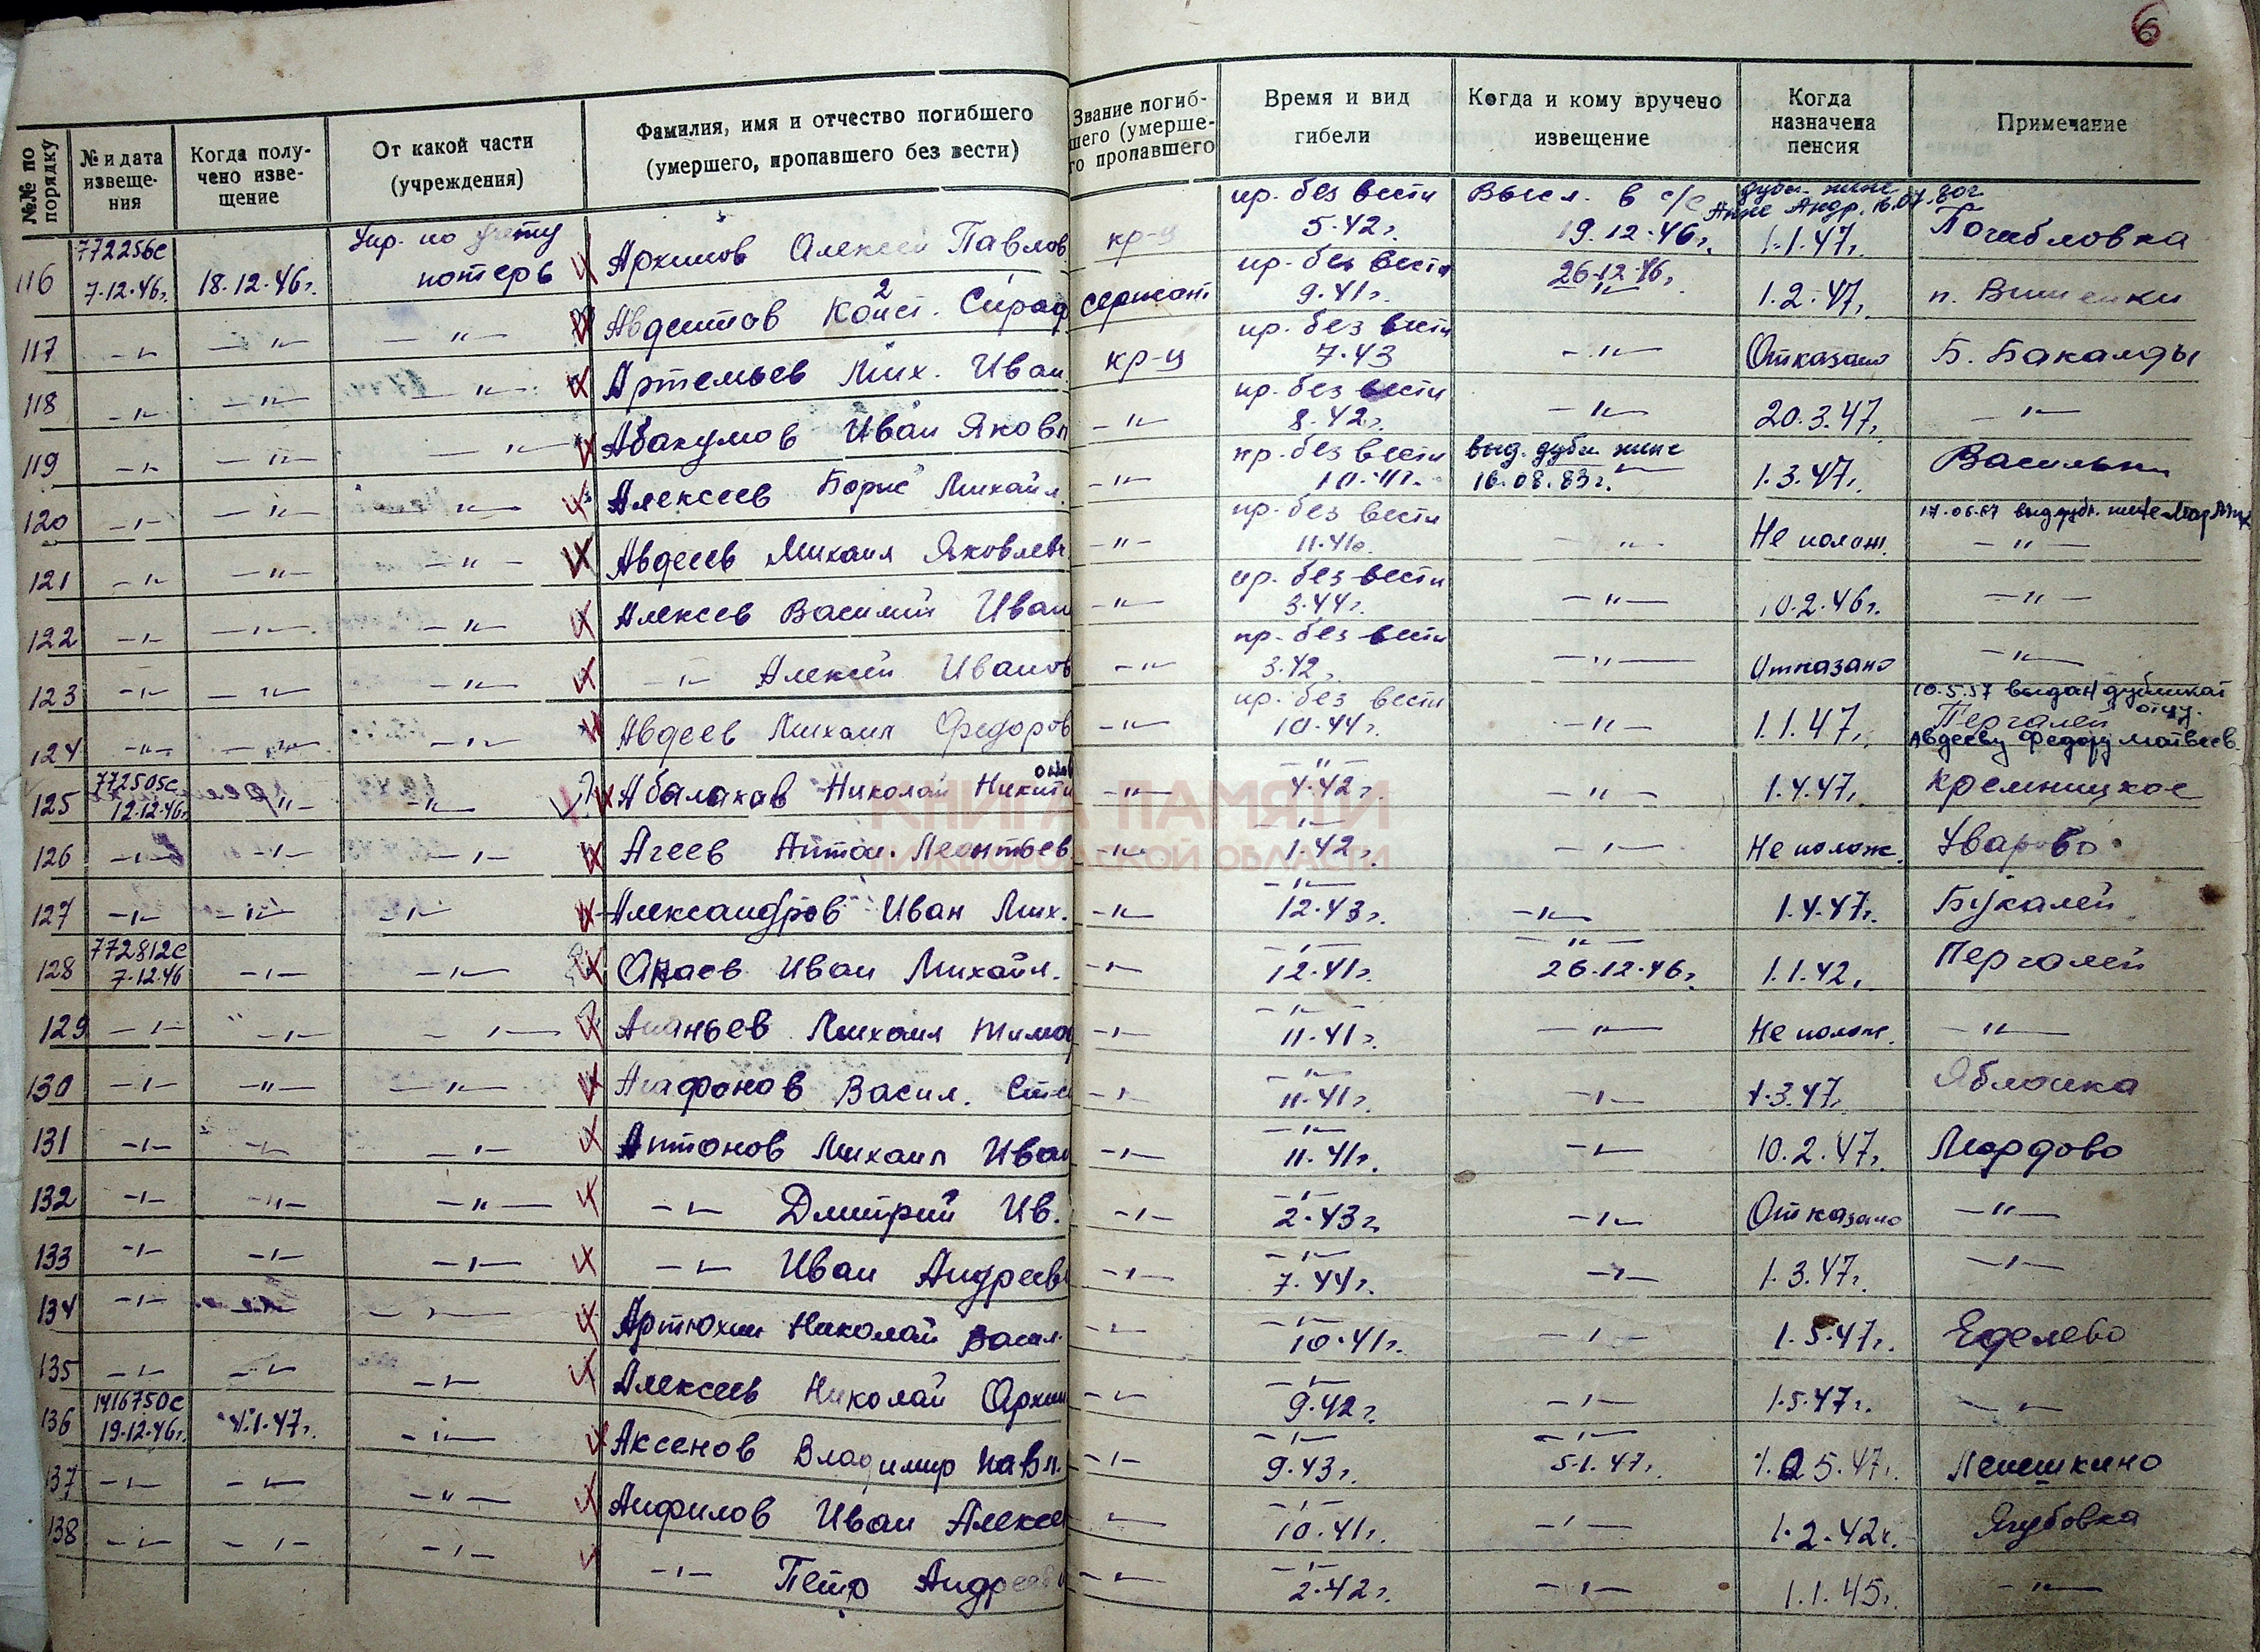 6
№№ по порядку
№ и дата извеще-ния
Когда полу-чено изве-щение
От какой части (учреждения)
Фамилия, имя и отчество погибшего (умершего, пропавшего без вести)
Звание погиб-шего (умерше-го пропавшего
Время и вид гибели
Когда и кому вручено извещение
Когда назначена пенсия
Примечание
116 772256с 7.12.46г. 18.12.46г. Упр. по учету потерь Архипов Алексей Павлов кр-ц пр. без вести 5.42г. Высл. в с/с 19.12.46г. 1.1.47г.
117 -"- -"- -"- Авдентов Конст. Сераф сержант пр. без вести 9.41г. 26.12.46г. -"- 1.2.47г. п. Вишенки
118 -"- -"- -"- Артемьев Мих. Иван. кр-ц пр. без вести 7.43 -"- Отказано Б. Бакалды
119 -"- -"- -"- Абакумов Иван Яковл -"- пр. без вести 8.42г. -"- 20.3.47г. -"-
120 -"- -"- -"- Алексеев Борис Михайл. -"- пр. без вести 10.41г. выд. дубл. жене 16.08.83г. -"- 1.3.47г.
121 -"- -"- -"- Авдеев Михаил Яковлев -"- пр. без вести 11.41г. -"- Не полож. 17.06.67 выд дубл. -"-
122 -"- -"- -"- Алексев Василий Иван -"- пр. без вести 3.44г. -"- 10.2.46г. -"-
123 -"- -"- -"- -"- Алексей Иванов -"- пр. без вести 3.42г. -"- Отказано -"-
124 -"- -"- -"- Авдеев Михаил Федоров -"- пр. без вести 10.44г. -"- 1.1.47г. 10.5.57 выдан дубликат отцу. Пергалей Авдееву Федору Матвеев.
125 772505с 12.12.46г. -"- -"- Абалаков Николай Никити -"- -"- 4.42г. -"- 1.4.47г. Кремницкое
126 -"- -"- -"- Агеев Антон. Леонтьев -"- -"- 1.42г. -"- Не полож. Уварово
127 -"- -"- -"- Александров Иван Мих. -"- -"- 12.43г. -"- 1.4.47г. Букалей
128 772812с 7.12.46 -"- -"- Иван Михайл. -"- -"- 12.41г. -"- 26.12.46г. 1.1.42г. Пергалей
129 -"- -"- -"- Ананьев Михаил Тимо -"- -"- 11.41г. -"- Не полож. -"-
130 -"- -"- -"- Агафонов Васил. Сте -"- -"- 11.41г. -"- 1.3.47г. Яблонка
131 -"- -"- -"- Антонов Михаил Иван -"- -"- 11.41г. -"- 10.2.47г. Мордово
132 -"- -"- -"- -"- Дмитрий Ив. -"- -"- 2.43г. -"- Отказано -"-
133 -"- -"- -"- -"- Иван Андреев -"- -"- 7.44г. -"- 1.3.47г. -"-
134 -"- -"- -"- Артюхин Николай Васил. -"- -"- 10.41г. -"- 1.5.47г. Еделево
135 -"- -"- -"- Алексеев Николай Архип -"- -"- 9.42г. -"- 1.5.47г. -"-
136 1416750с 19.12.46г. 4.1.47г. -"- Аксенов Владимир Павл. -"- -"- 9.43г. -"- 5.1.47г. Лепешкино
137 -"- -"- -"- Анфилов Иван Алексе -"- -"- 10.41г. -"- 1.2.42г. Ягубовка
138 -"- -"- -"- -"- Петр Андреев -"- -"- 2.42г. -"- 1.1.45г. -"-
КНИГА ПАМЯТИ
НИЖЕГОРОДСКОЙ ОБЛАСТИ